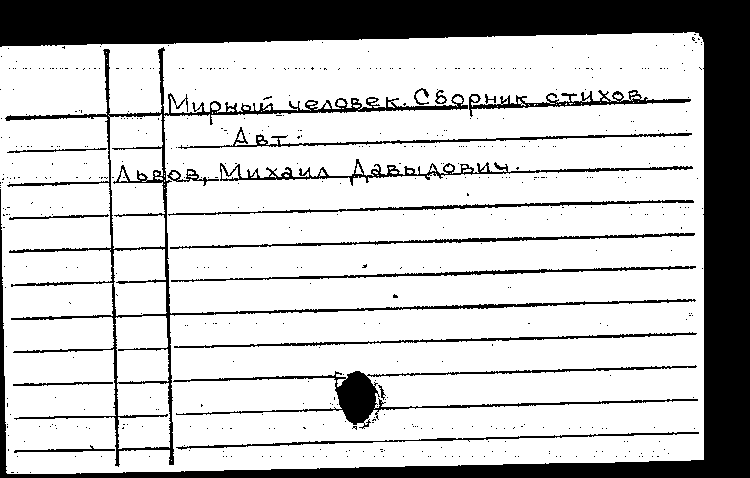 Мирный человек. Сборник стихов.
Авт.:
Львов, Михаил Давыдович.